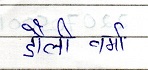 डौली वर्मा